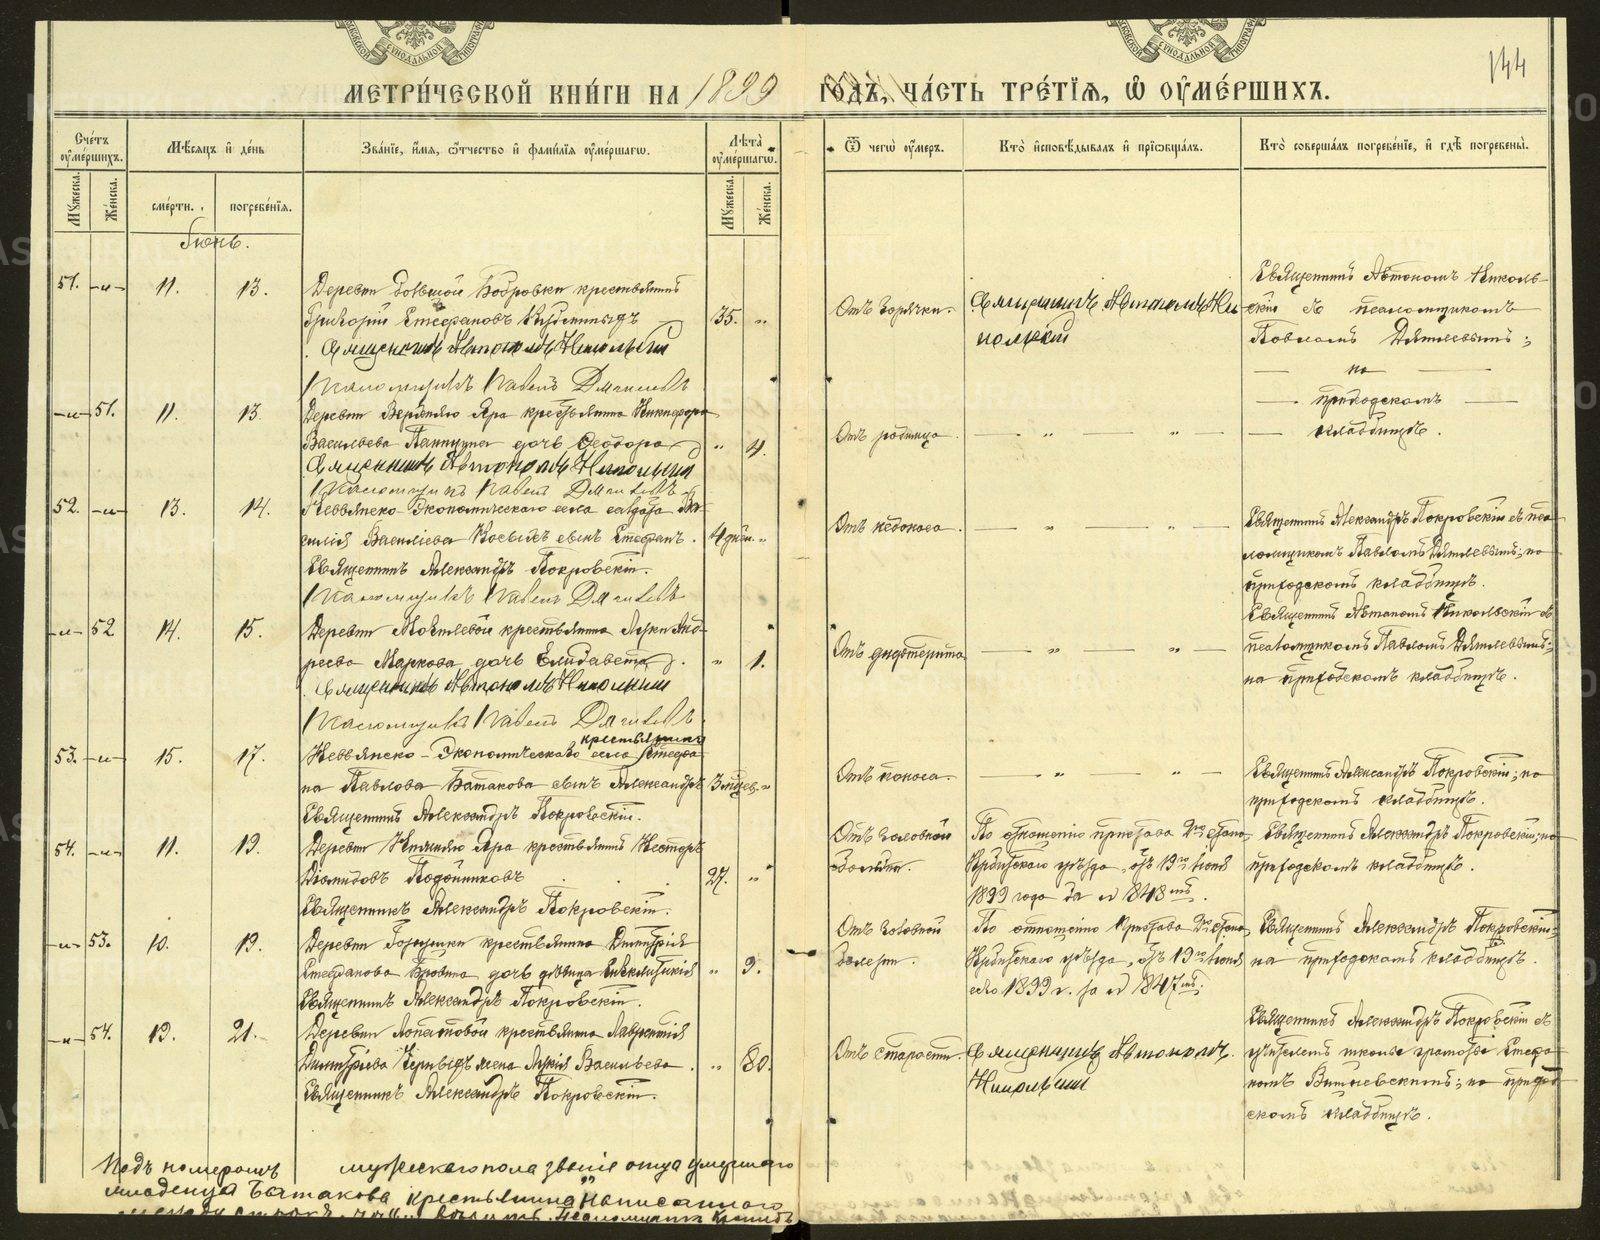 МЕТРИ́ЧЕСКОЙ КНИ́ГИ НА 1899 ГОДЪ, ЧА́СТЬ ТРЕ́ТІЯ, Ѡ ОУМЕ́РШИХЪ.
144
Сче́тъ оуме́ршихъ.
Мꙋ́жеска.
Же́нска.
Мѣ́сяцъ и де́нь
сме́рти.
погребе́нія.
Зва́ніе, и́мя, ѻ́тчество и фами́лія оуме́ршагѡ.
Лѣ́та оуме́ршагѡ.
Мꙋ́жеска.
Же́нска.
Ѿ чегѡ̀ оу́меръ.
Кто̀ исповѣ́дывалъ и пріѡбща́лъ.
Кто̀ соверша́лъ погребе́ніе, и гдѣ̀ погребены̀.
Іюнь.
51. -„- 11. 13. Деревни Большой Бобровки крестьянинъ
Григорій Стефановъ 35. „
Священникъ Автономъ Никольскій
Псаломщикъ Павелъ Дягилевъ
Отъ горячки.
Священникъ Автономъ Никольскій
Священникъ Автономъ Николь-
скій съ псаломщикомъ
Павломъ Дягилевымъ;
на
приходскомъ
кладбищѣ.
-„- 51. 11. 13. Деревни Верхняго Яра крестьянина Никифора
Васильева дочь Ѳеодора „ 4.
Священникъ Автономъ Никольскій
Псаломщикъ Павелъ Дягилевъ
Отъ родимца. — „ — „ —
52. -„- 13. 14. Невьянско-Экономическаго села солдата Ва-
силія Васильева сынъ Стефанъ. 4 дней. „
Священникъ Александръ Покровскій.
Псаломщикъ Павелъ Дягилевъ
Отъ недоноса. — „ — „ —
Священникъ Александръ Покровскій съ пса-
ломщикомъ Павломъ Дягилевымъ; на
приходскомъ кладбищѣ.
-„- 52 14. 15. Деревни крестьянина Луки Анд-
реева Маркова дочь Елизавета. „ 1.
Священникъ Автономъ Никольскій
Псаломщикъ Павелъ Дягилевъ.
Отъ дифтерита — „ — „ —
Священникъ Автономъ Никольскій съ
псаломщикомъ Павломъ Дягилевымъ;
на приходскомъ кладбищѣ.
крестьянина
53. -„- 15. 17. Невьянско-Экономическаго села Стефа-
на Павлова Батакова сынъ Александръ 3 мѣсяц. „
Священникъ Александръ Покровскій.
Отъ поноса. — „ — „ —
Священникъ Александръ Покровскій; на
приходскомъ кладбищѣ.
54. -„- 11. 19. Деревни Нижняго Яра крестьянинъ Несторъ
Діомидовъ 27. „
Священникъ Александръ Покровскій.
Отъ головной
болѣзни.
По отношенію пристава 2го стана
Ирбитскаго уѣзда, отъ 19го іюня
1899 года за № 1848мъ.
Священникъ Александръ Покровскій; на
приходскомъ кладбищѣ.
-„- 53. 10. 19. Деревни крестьянина Димитрія
Стефанова дочь дѣвица „ 9.
Священникъ Александръ Покровскій.
Отъ головной
болезни.
По отношенію Пристава 2го стана
Ирбитскаго уѣзда, отъ 19го іюня
сего 1899 г. за № 1847мъ.
Священникъ Александръ Покровскій;
на приходскомъ кладбищѣ.
-„- 54. 19. 21. Деревни Лопатовой крестьянина Лаврентія
Димитріева жена Васильева. „ 80.
Священникъ Александръ Покровскій.
Отъ старости.
Священникъ Автономъ
Никольскій
Священникъ Александръ Покровскій съ
учителемъ школы грамоты Стефа-
номъ; на приход-
скомъ кладбищѣ.
Подъ номеромъ мужескаго пола званіе отца умершаго
младенца Батакова крестьянина написаннаго